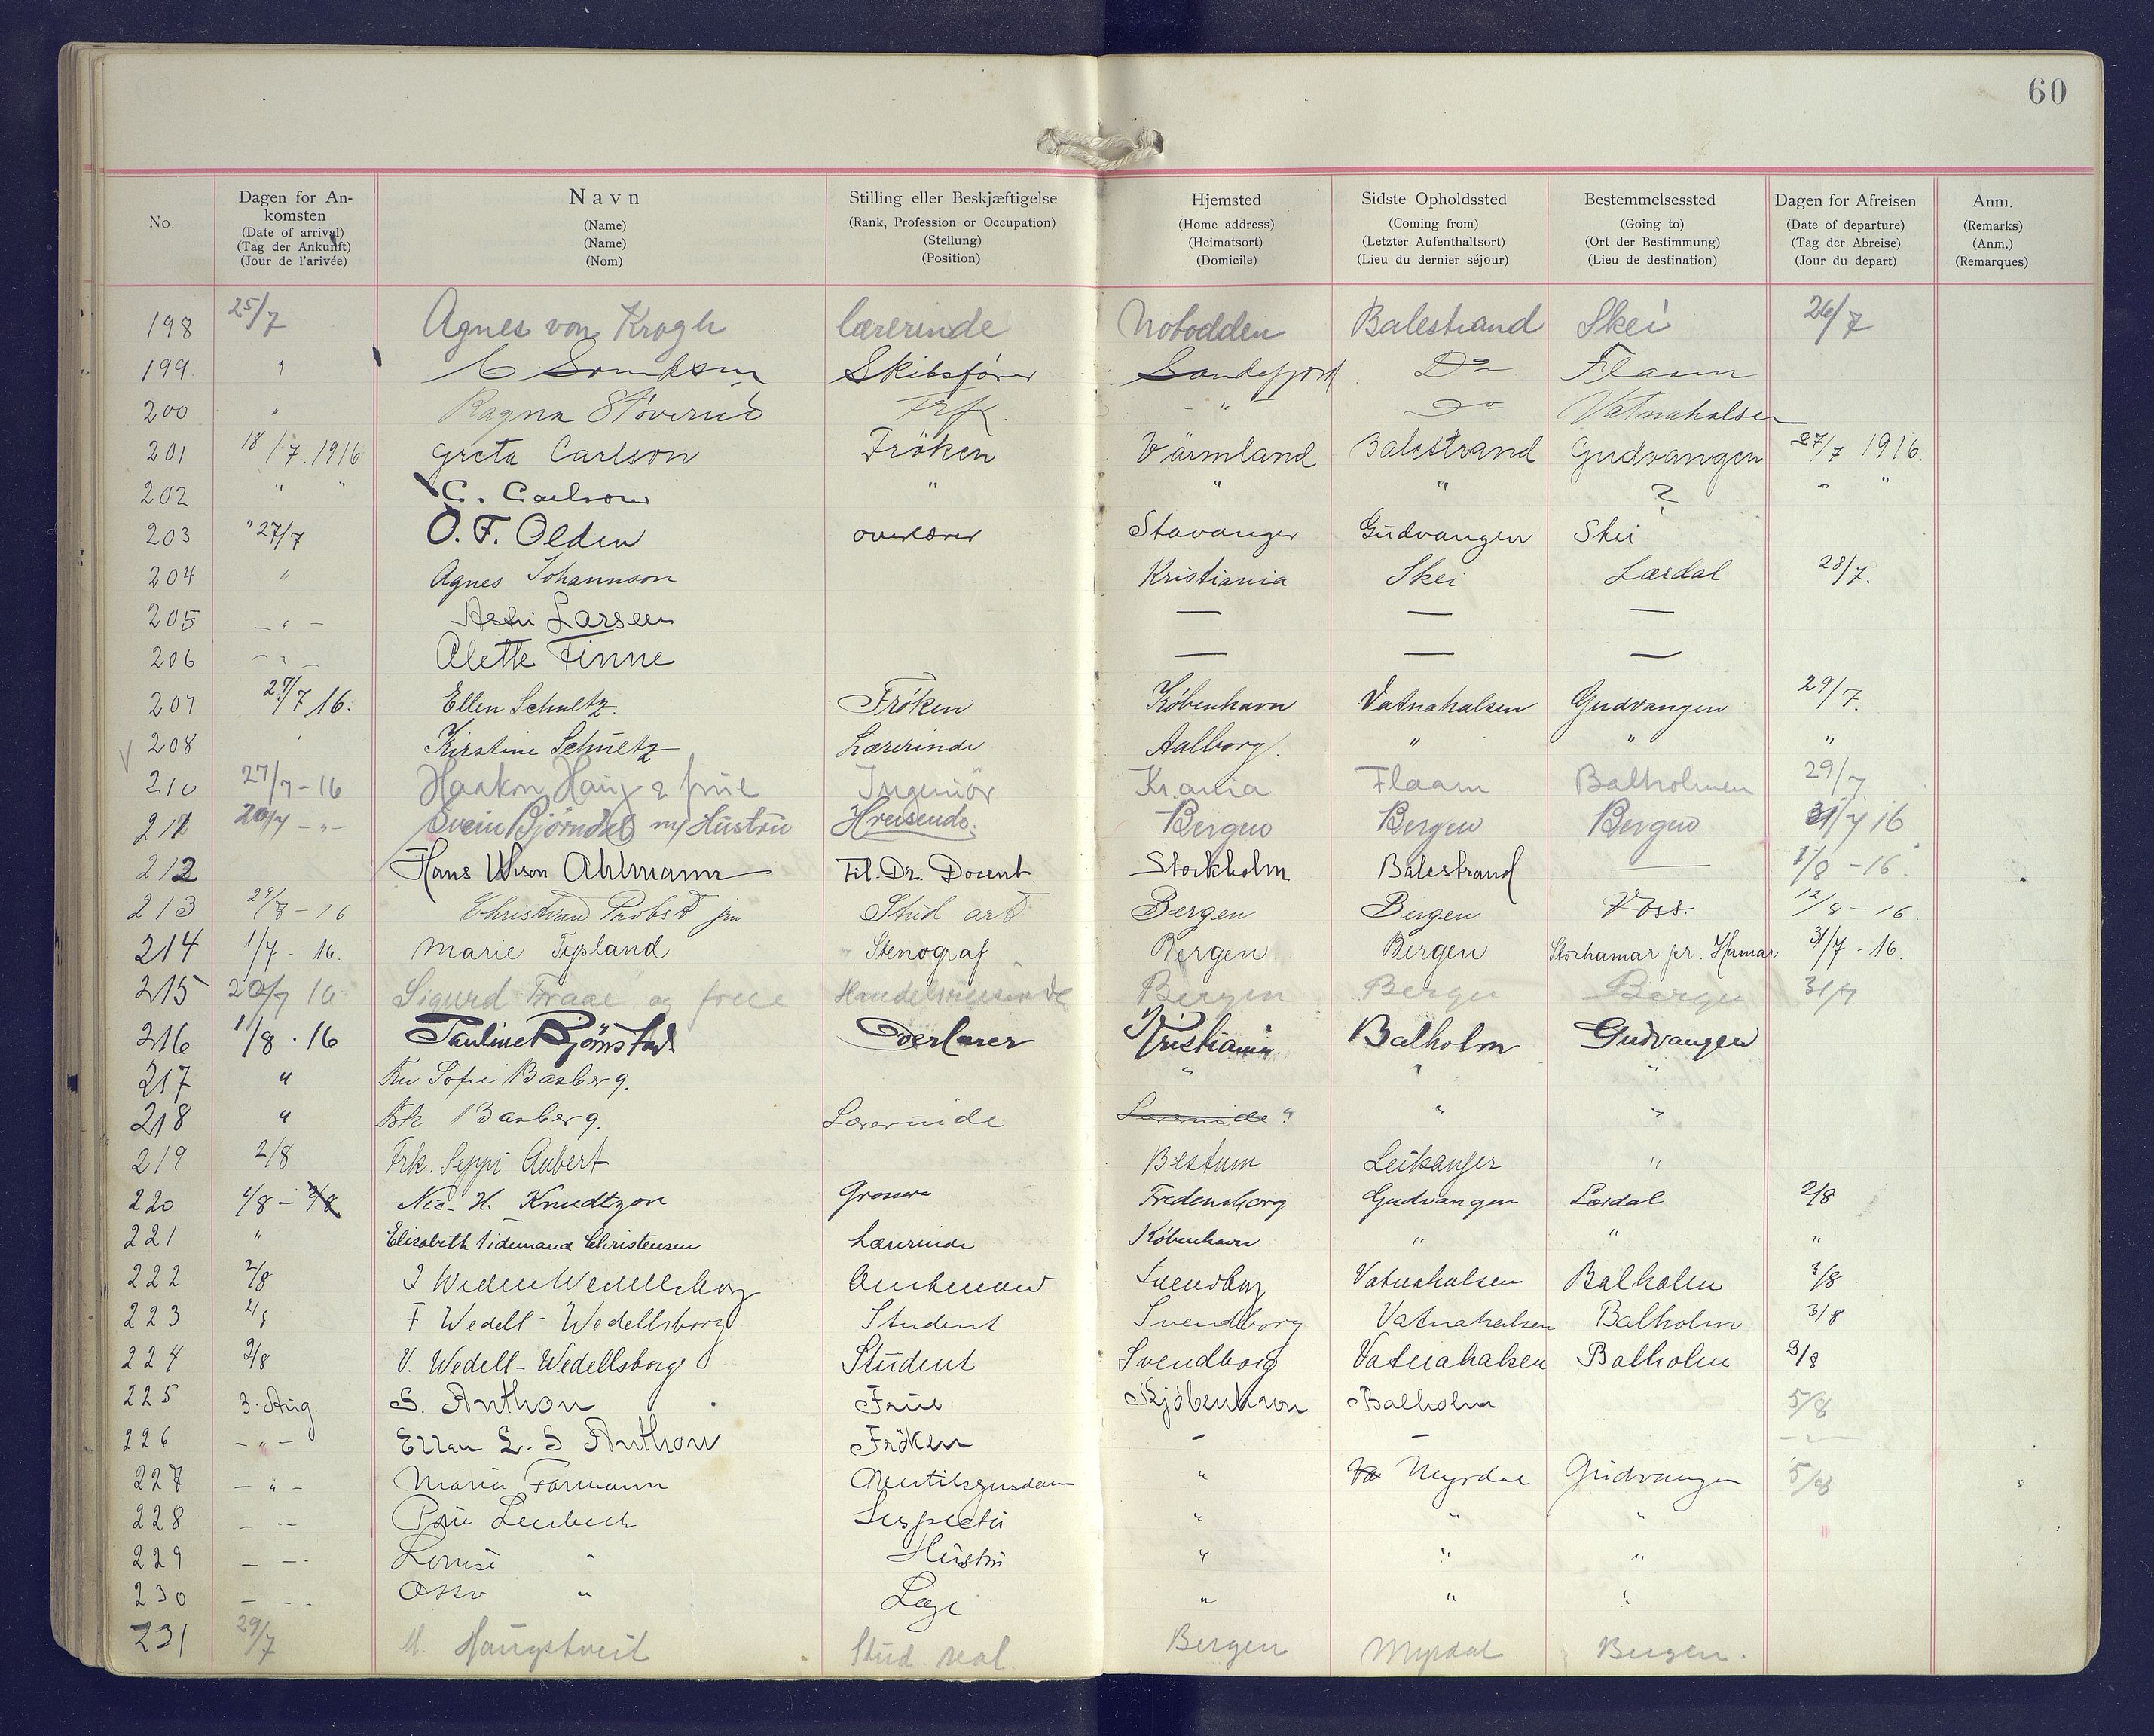 60
No. Dagen for An- komsten (Date of arrival) (Tag der Ankunft) (Jour de l'arivée) Navn (Name) (Name) (Nom) Stilling eller Beskjæftigelse (Rank, Profession or Occupation) (Stellung) (Position) Hjemsted (Home address) (Heimatsort) (Domicile) Sidste Opholdssted (Coming from) (Letzter Aufenthaltsort) (Lieu du dernier séjour) Bestemmelsessted (Going to) (Ort der Bestimmung) (Lieu de destination) Dagen for Afreisen (Date of departure) (Tag der Abreise) (Jour du depart) Anm. (Remarks) (Anm.) (Remarques)
198 25/7 Agnes von Krogh lærerinde Notodden Balestrand Skei 26/7
199 " Skibsfører Sandefjord Do Flaam
200 " Ragna Frk. " Do Vatnahalsen
201 18/7.1916 Greta Carlson Fröken Värmland Balestrand Gudvangen 27/7 1916.
202 " " C. Carlson " " " ? " "
203 " 27/7 O. F. Olden overlærer Stavanger Gudvangen Skei
204 " Agnes Johannson Kristiania Skei Lærdal 28/7.
205 — " — Larsen — — —
206 — " — Alette Finne — — —
207 27/7 16. Ellen Schultz. Frøken København Vatnahalsen Gudvangen 29/7.
208 " Kirstine Schultz Lærerinde Aalborg. " " "
210 27/7-16 Haakon Haug & frue Ingeniør Kr.ania Flaam Balholmen 29/7
211 20/7 - " - Svein Bjørndal m/ Hustru H.reisende. Bergen Bergen Bergen 31/7 16
212 Hans Wson Ahlmann Fil. Dr. Docent Stockholm Balestrand — 1/8 - 16.
213 29/7 - 16 Christian Probst jun Stud art Bergen Bergen Voss. 12/8 - 16.
214 1/7 - 16. Marie Tysland Stenograf Bergen Bergen Storhamar pr. Hamar 31/7 - 16.
215 20/7 16 Sigurd Traae og frue Handelsreisende Bergen Bergen Bergen 31/7
216 1/8 . 16 Pauline Bjørnstad. Overlærer Kristiania Balholm Gudvangen
217 " Fru Sofie Basberg. " " "
218 " Frk Basberg. Lærerinde Lærerinde " " "
219 2/8 Frk. Seppi Aubert Bestum Leikanger "
220 1/8 - 2/8 Nic. H. Knudtzon Grosserer Fredensborg Gudvangen Lærdal 2/8
221 " Elisabeth Tidemand Christensen Lærerinde København " " "
222 2/8 Wedell Wedellsborg Svendborg Vatnahalsen Balholm 3/8
223 2/8 F Wedell - Wedellsborg Student Svendborg Vatnahalsen Balholm 3/8
224 2/8 V. Wedell-Wedellsborg Student Svendborg Vatnahalsen Balholm 3/8
225 3. Aug. S. Anthon Frue Kjöbenhavn Balholm 5/8
226 — " — Ellen L. S Anthon Fröken — — — " —
227 — " — Maria Formann " Va Myrdal Gudvangen 5/8
228 — " — " " "
229 — " — Louise " Hustru " " "
230 — " — Læge " " "
231 29/7 M. Haugstveit Stud. real. Bergen Myrdal Bergen.